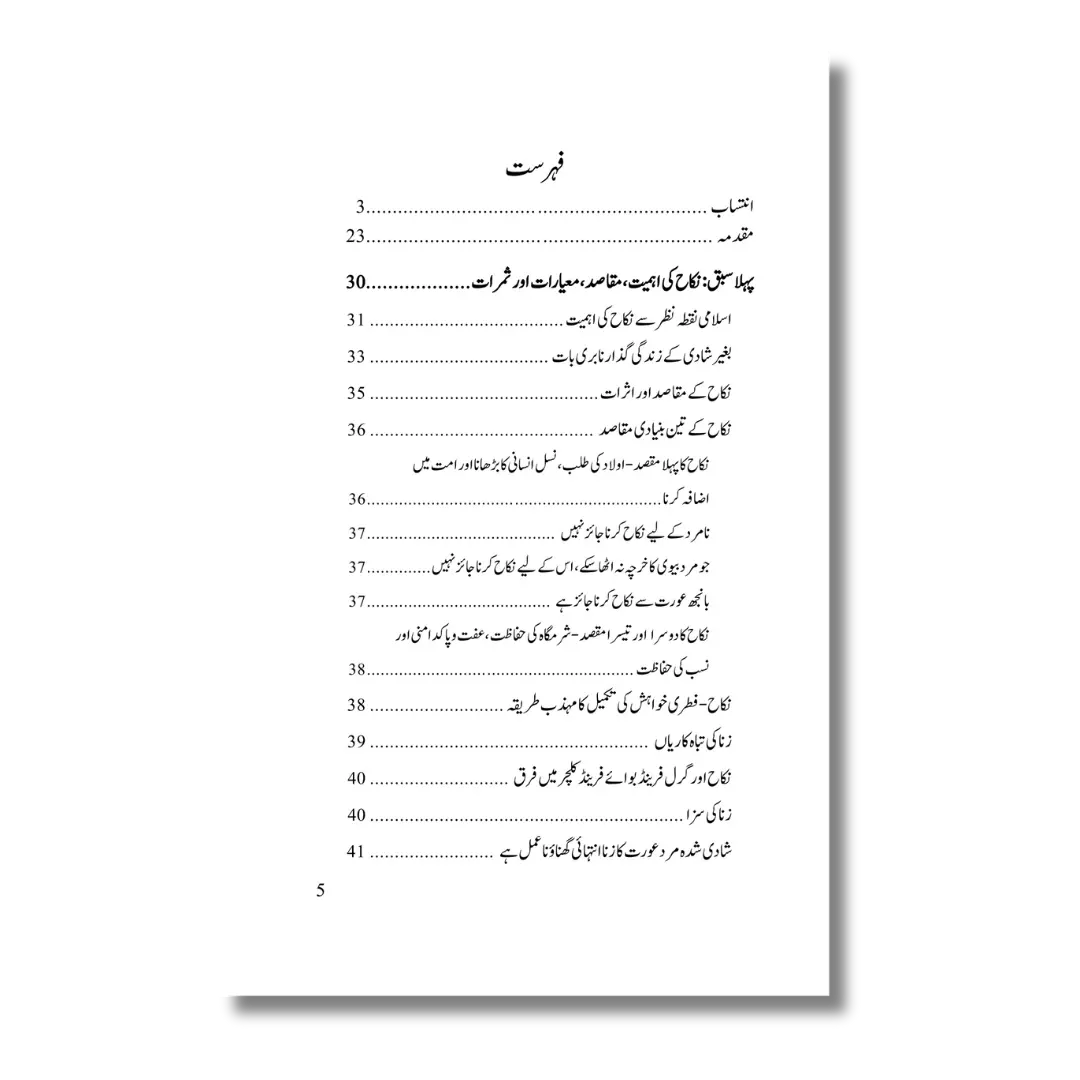 فہرست
انتساب ................................................................ 3
مقدمہ ................................................................ 23
پہلا سبق: نکاح کی اہمیت، مقاصد، معیارات اور ثمرات ................... 30
اسلامی نقطہ نظر سے نکاح کی اہمیت ..................................... 31
بغیر شادی کے زندگی گذارنا بری بات ................................... 33
نکاح کے مقاصد اور اثرات ............................................ 35
نکاح کے تین بنیادی مقاصد ............................................ 36
نکاح کا پہلا مقصد - اولاد کی طلب، نسل انسانی کا بڑھانا اور امت میں
اضافہ کرنا ......................................................... 36
نامرد کے لیے نکاح کرنا جائز نہیں ...................................... 37
جو مرد بیوی کا خرچہ نہ اٹھا سکے، اس کے لیے نکاح کرنا جائز نہیں .............. 37
بانجھ عورت سے نکاح کرنا جائز ہے ....................................... 37
نکاح کا دوسرا اور تیسرا مقصد - شرمگاہ کی حفاظت، عفت و پاکدامنی اور
نسب کی حفاظت ...................................................... 38
نکاح - فطری خواہش کی تکمیل کا مہذب طریقہ ........................... 38
زنا کی تباہ کاریاں ..................................................... 39
نکاح اور گرل فرینڈ بوائے فرینڈ کلچر میں فرق ........................... 40
زنا کی سزا ............................................................ 40
شادی شدہ مرد عورت کا زنا انتہائی گھناؤنا عمل ہے ......................... 41
5